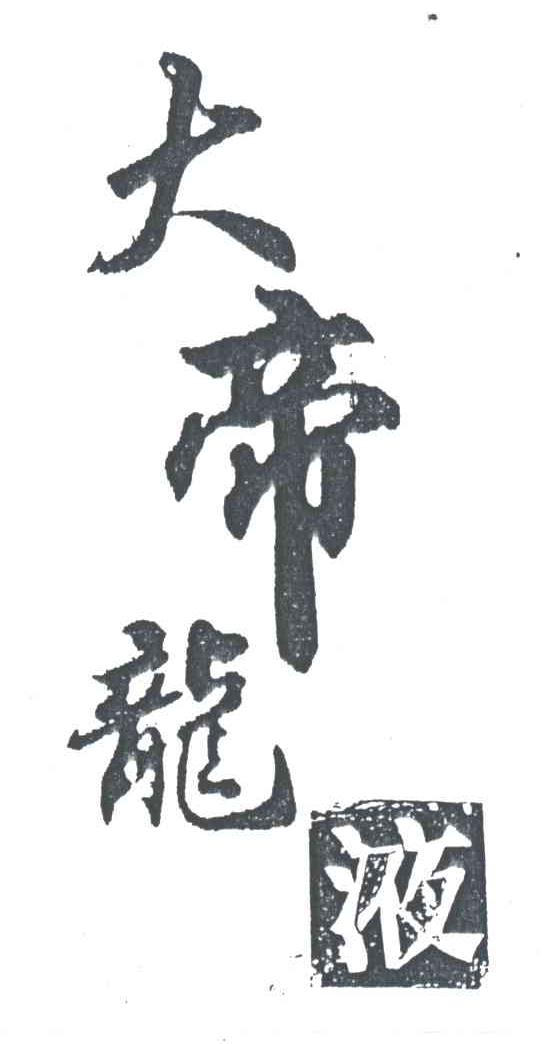 大帝龍
液